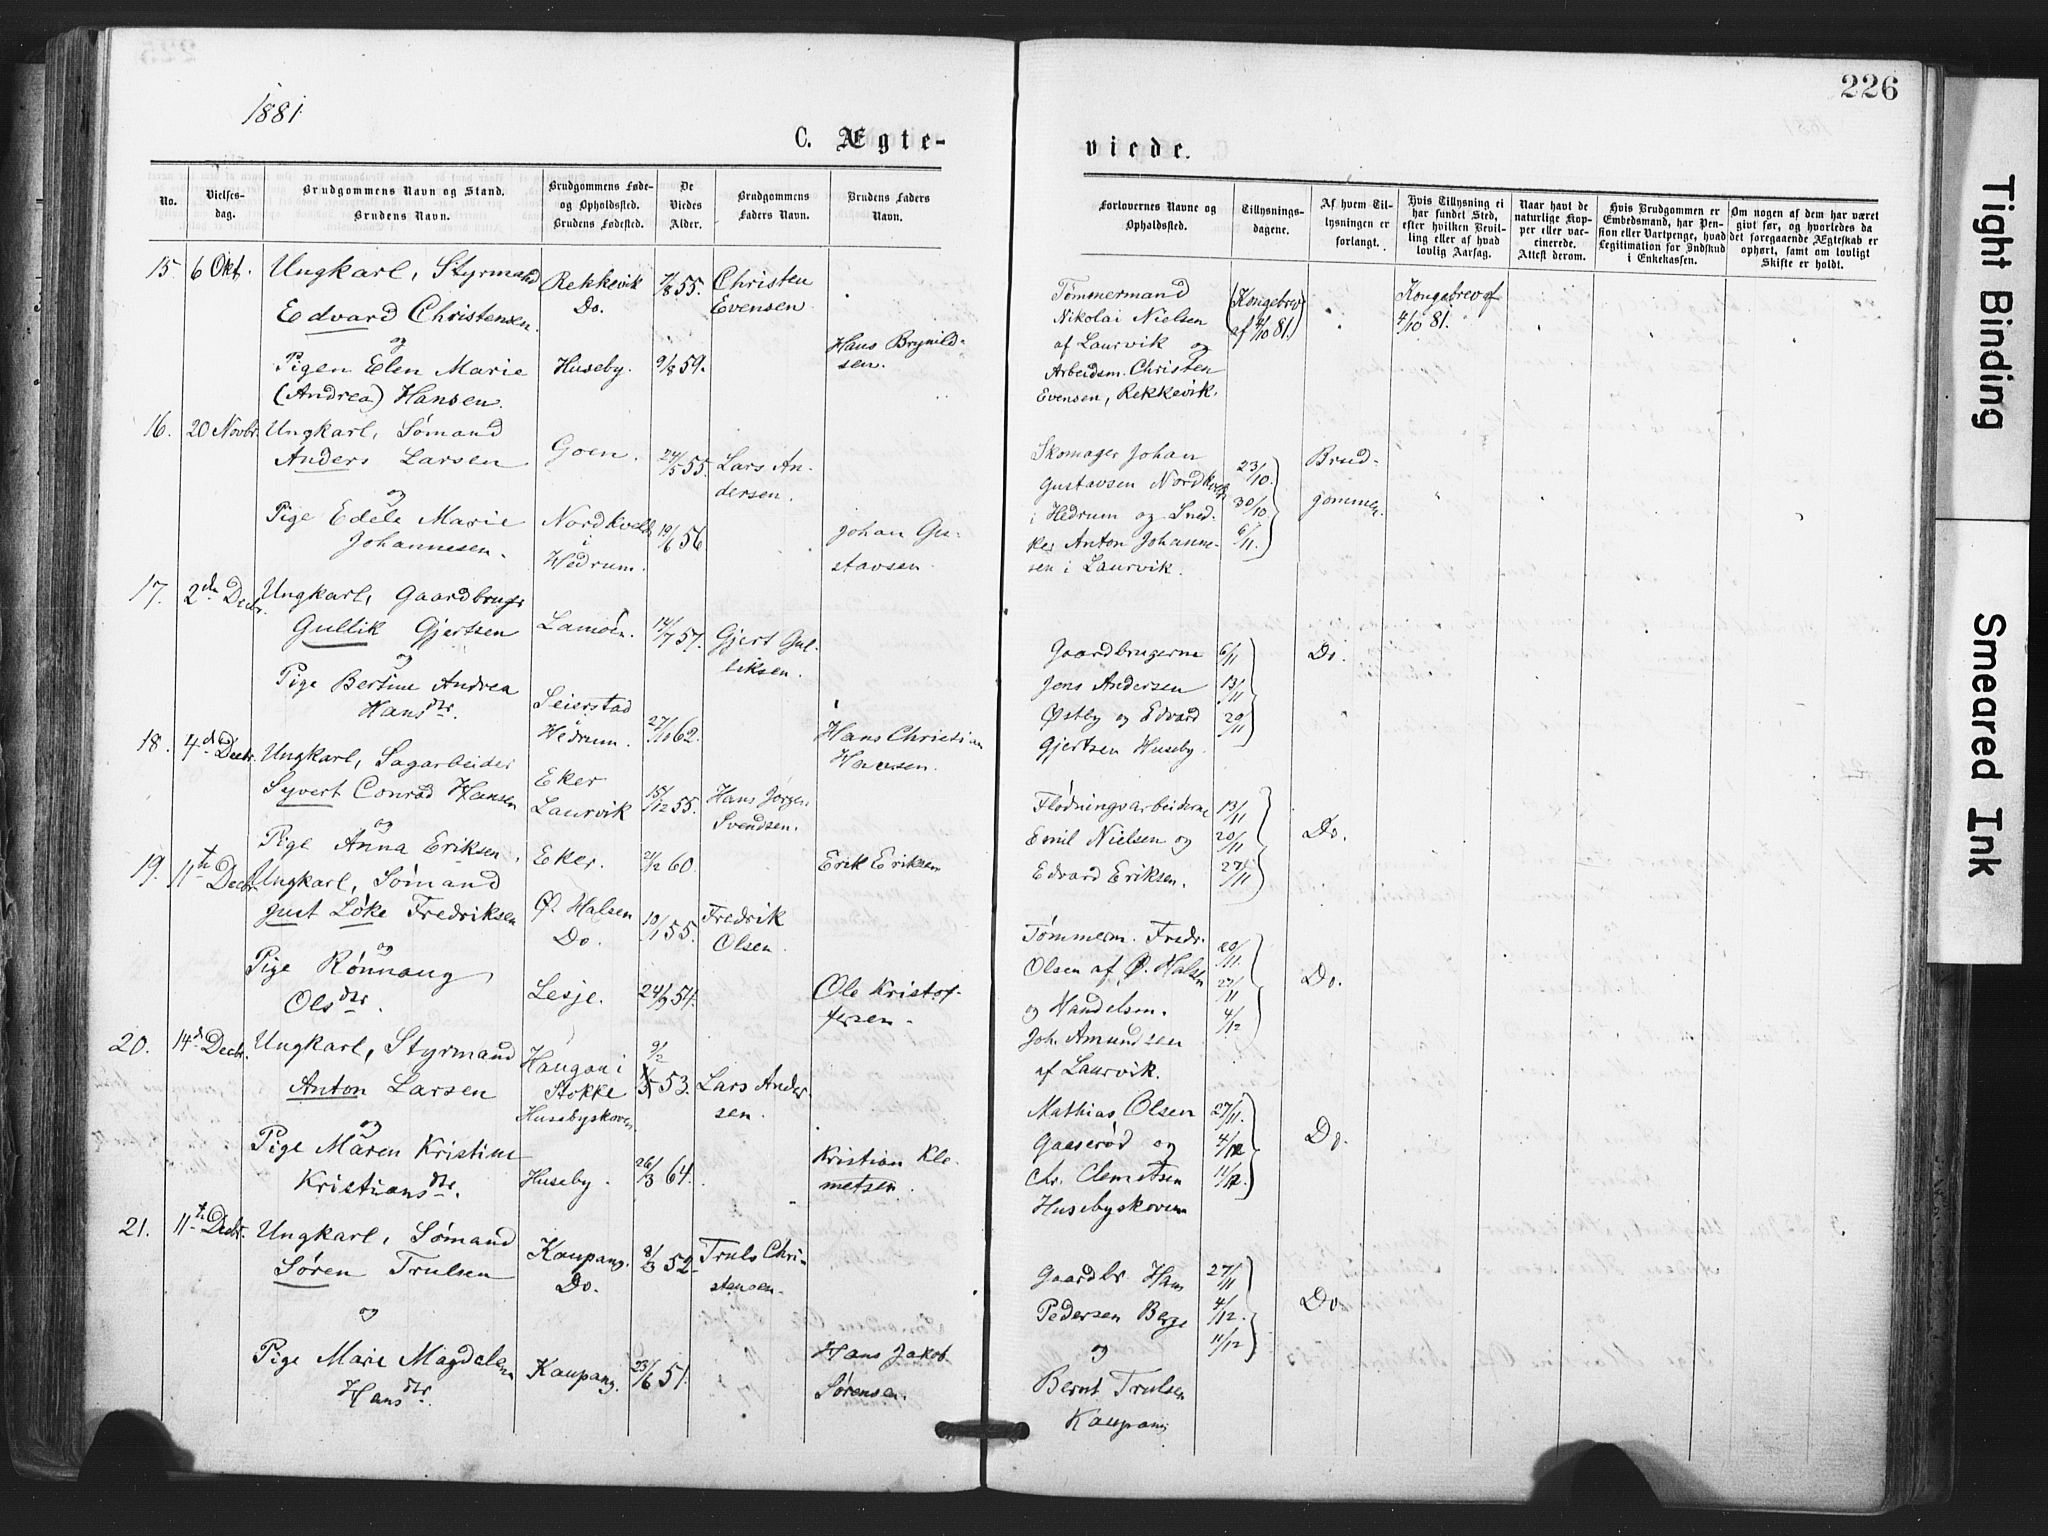 226
1881
C. Ægte-
viede.
No.
Vielses-
dag.
Brudgommens Navn og Stand.
Brudens Navn.
Brudgommens Føde-
og Opholdssted.
Brudens Fødested.
De
Viedes
Alder.
Brudgommens
Faders Navn.
Brudens Faders
Navn.
Forlovernes Navne og
Opholdssted.
Tillysnings-
dagene.
Af hvem Til-
lysningen er
forlangt.
Hvis Tillysning ei
har fundet Sted,
efter hvilken Bevil-
ling eller af hvad
lovlig Aarsag.
Naar havt de
naturlige Kop-
per eller vac-
cinerede.
Attest derom.
Hvis Brudgommen er
Embedsmand, har Pen-
sion eller Vartpenge, hvad
Legitimation for Indskud
i Enkekassen.
Om nogen af dem har været
givt før, og hvorledes da
det foregaaende Ægteskab er
ophørt, samt om lovligt
Skifte er holdt.
15. 6 Okt. Ungkarl, Styrmand
Edvard Christensen
og
Pigen Elen Marie
(Andrea) Hansen.
Rekkevik
Do.
Huseby.
7/8 55.
9/8 59.
Christen
Evensen
Hans Brynild-
sen.
Tømmermand
Nikolai Nielsen
af Laurvik og
Arbeidsm. Christen
Evensen, Rekkevik.
(Kongebrev
af 4/10 81.)
Kongebrev af
4/10 81.
16. 20 Novbr. Ungkarl, Sømand
Anders Larsen
og
Pige Edele Marie
Johannesen.
Goen.
Nordkveld
i
Hedrum.
24/5 55.
19/6 56
Lars An-
dersen.
Johan Gu-
stavsen.
Skomager Johan
Gustavsen Nordkveld
i Hedrum og Sned-
ker Anton Johanne-
sen i Laurvik.
23/10.
30/10
6/11.
Brud-
gommen.
17. 2den Decbr. Ungkarl, Gaardbruger
Gullik Gjertsen
og
Pige Bertine Andrea
Hansdtr.
Lamøen.
Seierstad
Hedrum.
14/7 57.
27/10 62.
Gjert Gul-
liksen.
Hans Christian
Hansen.
Gaardbrugerne
Jens Andersen
Østby og Edvard
Gjertsen Huseby.
6/11
13/11
20/11
Do.
18. 4de Decbr. Ungkarl, Sagarbeider
Syvert Conrad Hansen
og
Pige Anna Eriksen,
Eker
Laurvik
Eker.
15/12 55.
21/2 60
Hans Jørgen
Svendsen.
Erik Eriksen
Flødningsarbeiderne
Emil Nielsen og
Edvard Eriksen.
13/11
20/11
27/11
Do.
19. 11te Decbr. Ungkarl, Sømand
Just Løke Fredriksen
og
Pige Rønnaug
Olsdtr.
Ø. Halsen
Do.
Lesje.
10/1 55.
24/9 54.
Fredrik
Olsen.
Ole Kristof-
fersen.
Tømmerm. Fredr.
Olsen af Ø. Halsen
og Handelsm.
Joh. Amundsen
af Laurvik.
20/11.
27/11
4/12
Do.
20. 14de Decbr. Ungkarl, Styrmand
Anton Larsen
og
Pige Maren Kristine
Kristiansdtr.
Haugan i
Stokke
Husebyskoven
Huseby.
9/2
53.
26/3 64.
Lars Ander-
sen.
Kristian Kle-
metsen.
Mathias Olsen
Gaaserød og
Chr. Clemetsen
Husebyskoven
27/11.
4/12
11/12.
Do.
21. 11te Decbr. Ungkarl, Sømand
Søren Trulsen
og
Pige Marie Magdelena
Hansdtr.
Kaupang.
Do.
Kaupang.
8/3 52.
23/6 51.
Truls Chri-
stensen.
Hans Jakob
Sørensen.
Gaardbr. Hans
Pedersen Berge
og
Bernt Trulsen
Kaupang
27/11
4/12.
11/12
Do.
Tight Binding
Smeared Ink